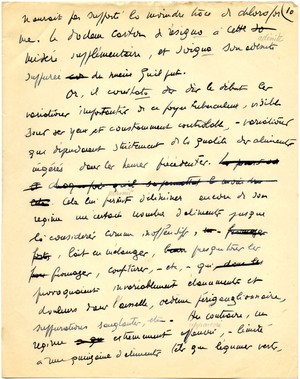 n'aurait pu supporter la moindre trace de chlorofor- (10
me. Le Docteur Carton d'ésigna à cette
misère supplémentaire, et soigna son adénite
suppurée de mieux qu'il put.
Or, il constata dès le début les
variations importantes de ce foyer tuberculeux, visible
sous ses yeux et constamment contrôlable, - variations
qui dépendaient strictement de la qualité des aliments
ingérés dans les heures précédentes.
Cela lui permit d'éliminer encore de son
régime un certain nombre d'aliments jusque
là considérés comme inoffensifs,
lait en mélanger, presque tous les
fromages, confitures, - etc, - qui
provoquaient invariablement élancements et
douleurs dans l'aisselle, oedème périganglionnaire,
suppurations sanglantes, etc - Au contraire, un
régime extrêmement - limité
à une quinzaine d'aliments tels que légumes verts,